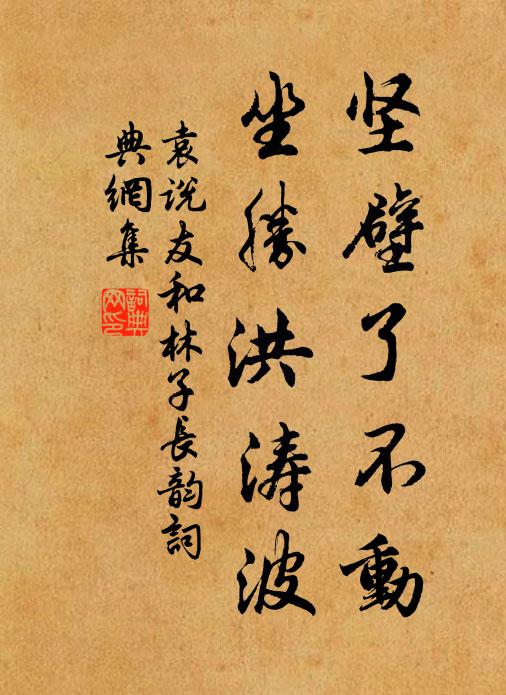 坚壁了不動
坐勝洪涛波
袁说友和林子長韵詞
典網集
詞典
网印